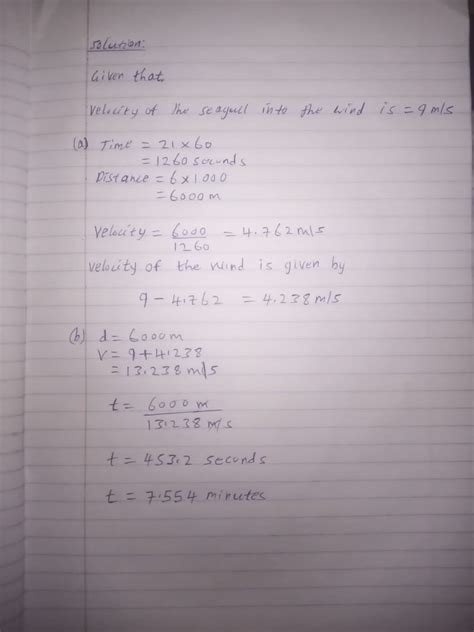 Solution:
Given that
Velocity of the seagull into the wind is = 9 m/s
(a) Time = 21 x 60
= 1260 seconds
Distance = 6 x 1000
= 6000 m
Velocity = 6000/1260 = 4.762 m/s
velocity of the wind is given by
9 - 4.762 = 4.238 m/s
(b) d = 6000m
V = 9 + 4.238
= 13.238 m/s
t = 6000 m / 13.238 m/s
t = 453.2 seconds
t = 7.554 minutes